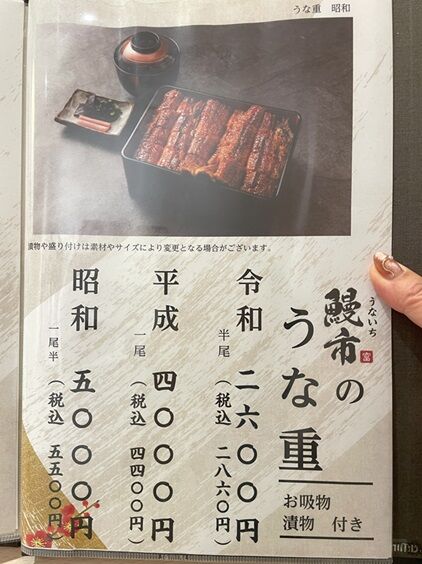 うな重 昭和
漬物や盛り付けは素材やサイズにより変更となる場合がございます。
うないち
鰻市の
富
うな重
お吸物
漬物 付き
令和 二六〇〇円
半尾 (税込 二八六〇円)
平成 四〇〇〇円
一尾 (税込 四四〇〇円)
昭和 五〇〇〇円
一尾半 (税込 五五〇〇円)